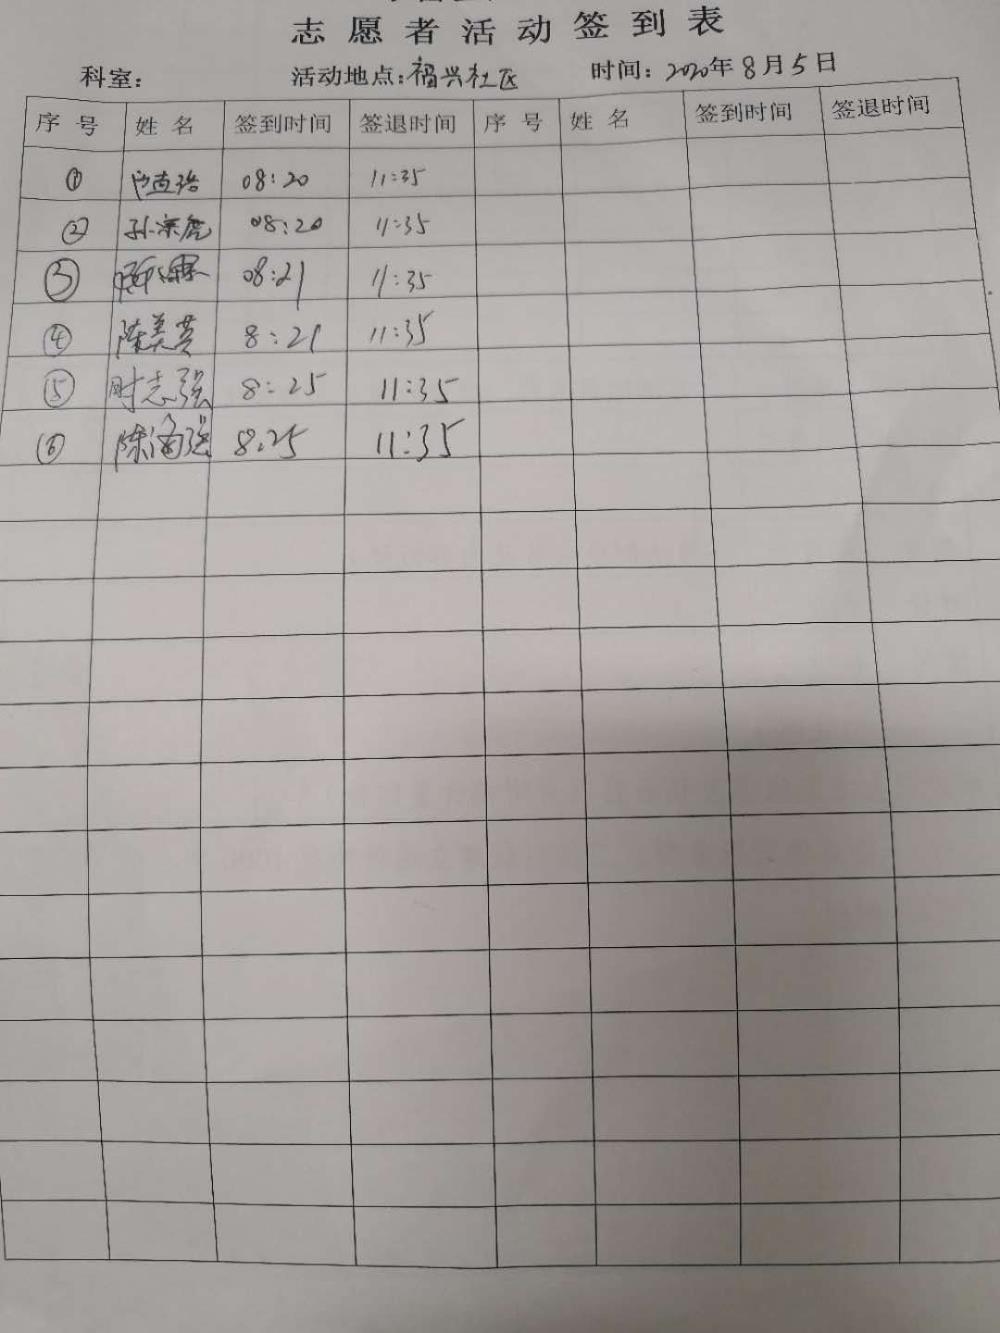 志愿者活动签到表
科室: 活动地点:福兴社区 时间: 2020年8月5日
序号 姓名 签到时间 签退时间 序号 姓名 签到时间 签退时间
① 08:20 11:35
② 孙宗虎 08:20 11:35
③ 08:21 11:35
④ 陈美芸 8:21 11:35
⑤ 时志强 8:25 11:35
⑥ 陈海强 8:25 11:35